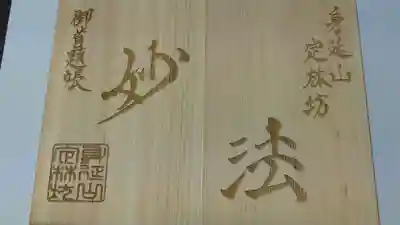 身延山
定林坊
妙法
御首題帳
身延山
定林坊